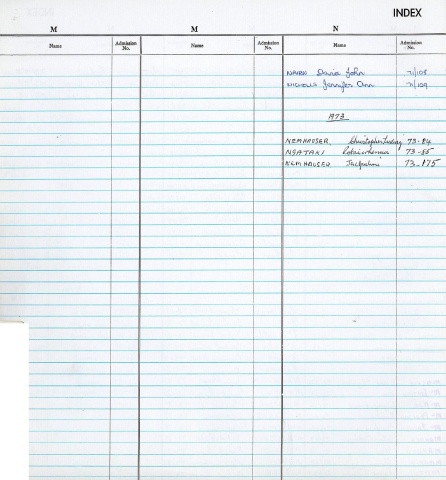 INDEX
M M N
Name Admission No. Name Admission No. Name Admission No.
NAIRN David John 71/108
NICHOLLS Jennifer Ann 71/109
1973
NEMHAUSER, Christopher 73-84
NGATAKI 73-85
NEMHAUSER, Jacqueline 73-175